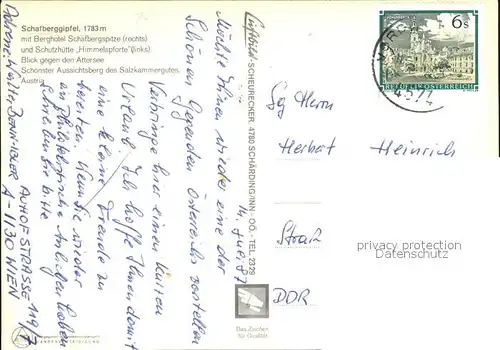 Schafberggipfel, 1783 m
mit Berghotel Schafbergspitze (rechts)
und Schutzhütte „Himmelspforte" (links)
Blick gegen den Attersee
Schönster Aussichtsberg des Salzkammergutes
Austria
14. Juli 87
Möchte Ihnen wieder eine der
schönen Gegenden Österreichs vorstellen
Verbringe hier einen kurzen
Urlaub. Ich hoffe Ihnen damit
eine kleine Freude zu
bereiten. Wenn Sie wieder
an philatelistische Anliegen haben
schreiben Sie bitte
AUHOFSTRASSE 119/7
A-1130 WIEN
Luftbild: SCHEURECKER, 4780 SCHÄRDING/INN, OÖ., TEL. 2328
6 S
REPUBLIK ÖSTERREICH
Sg Herrn
Herbert Heinrich
DDR
privacy protection
Datenschutz
Das Zeichen
für Qualität